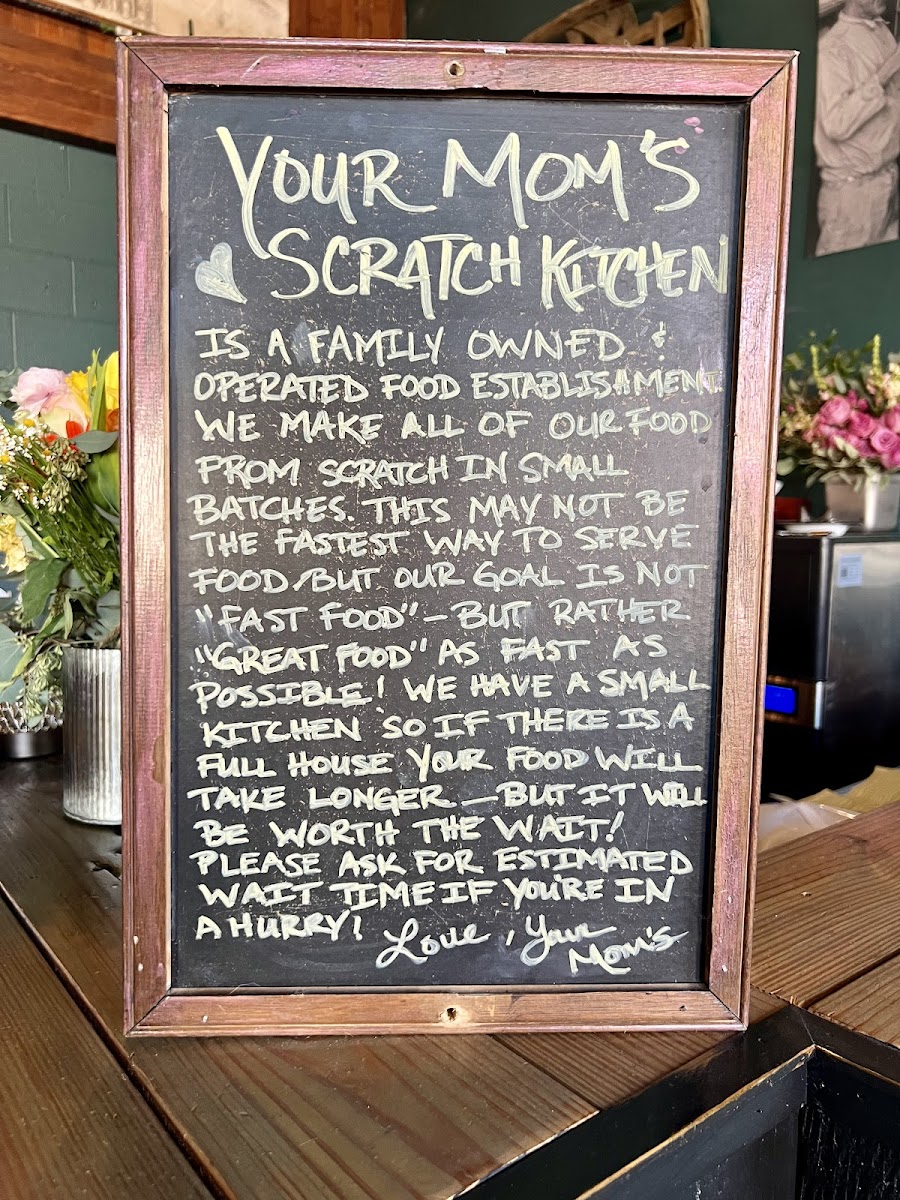 YOUR MOM'S
SCRATCH KITCHEN
IS A FAMILY OWNED &
OPERATED FOOD ESTABLISHMENT.
WE MAKE ALL OF OUR FOOD
FROM SCRATCH IN SMALL
BATCHES. THIS MAY NOT BE
THE FASTEST WAY TO SERVE
FOOD, BUT OUR GOAL IS NOT
"FAST FOOD" - BUT RATHER
"GREAT FOOD" AS FAST AS
POSSIBLE! WE HAVE A SMALL
KITCHEN SO IF THERE IS A
FULL HOUSE YOUR FOOD WILL
TAKE LONGER - BUT IT WILL
BE WORTH THE WAIT!
PLEASE ASK FOR ESTIMATED
WAIT TIME IF YOU'RE IN
A HURRY! Love, Your
Mom's